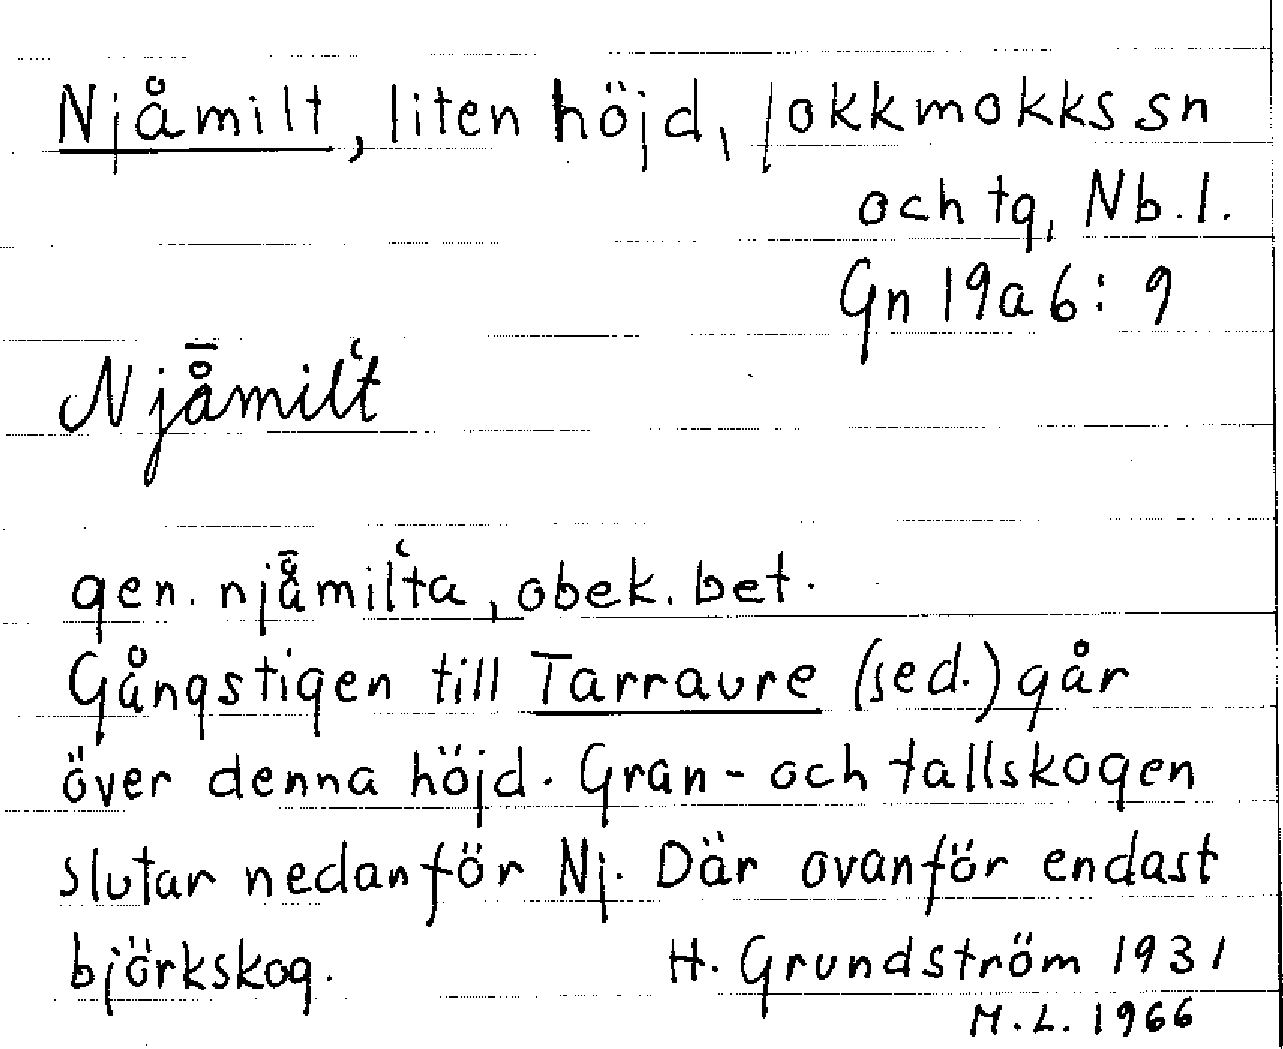 Njåmilt, liten höjd, Jokkmokks sn
och tg, Nb.l.
Gn 19a6: 9
Njå̄milʿt
gen. njå̄milʿta, obek. bet.
Gångstigen till Tarraure (sed.) går
över denna höjd. Gran- och tallskogen
slutar nedanför Nj. Där ovanför endast
björkskog. H. Grundström 1931
M.L. 1966